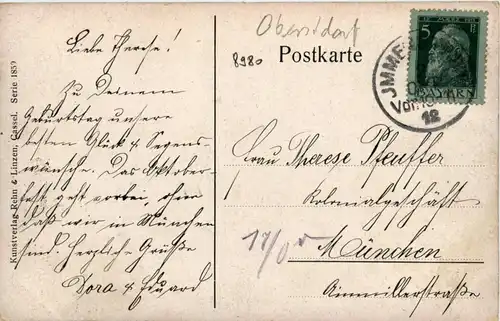 Oberstdorf
8980
Postkarte
5
BAYERN
JMME
Vor
12
Liebe Therese!
Zu Deinem
Geburtstag unsere
besten Glück & Segens-
wünsche. Das Oktober-
fest geht vorbei, ohne
daß wir in München
sind. Herzliche Grüße
Dora & Eduard
Kunstverlag Rehn & Linzen, Cassel. Serie 1859
Frau Therese Pfeuffer
Kolonialgeschäft
München
Ainmillerstraße